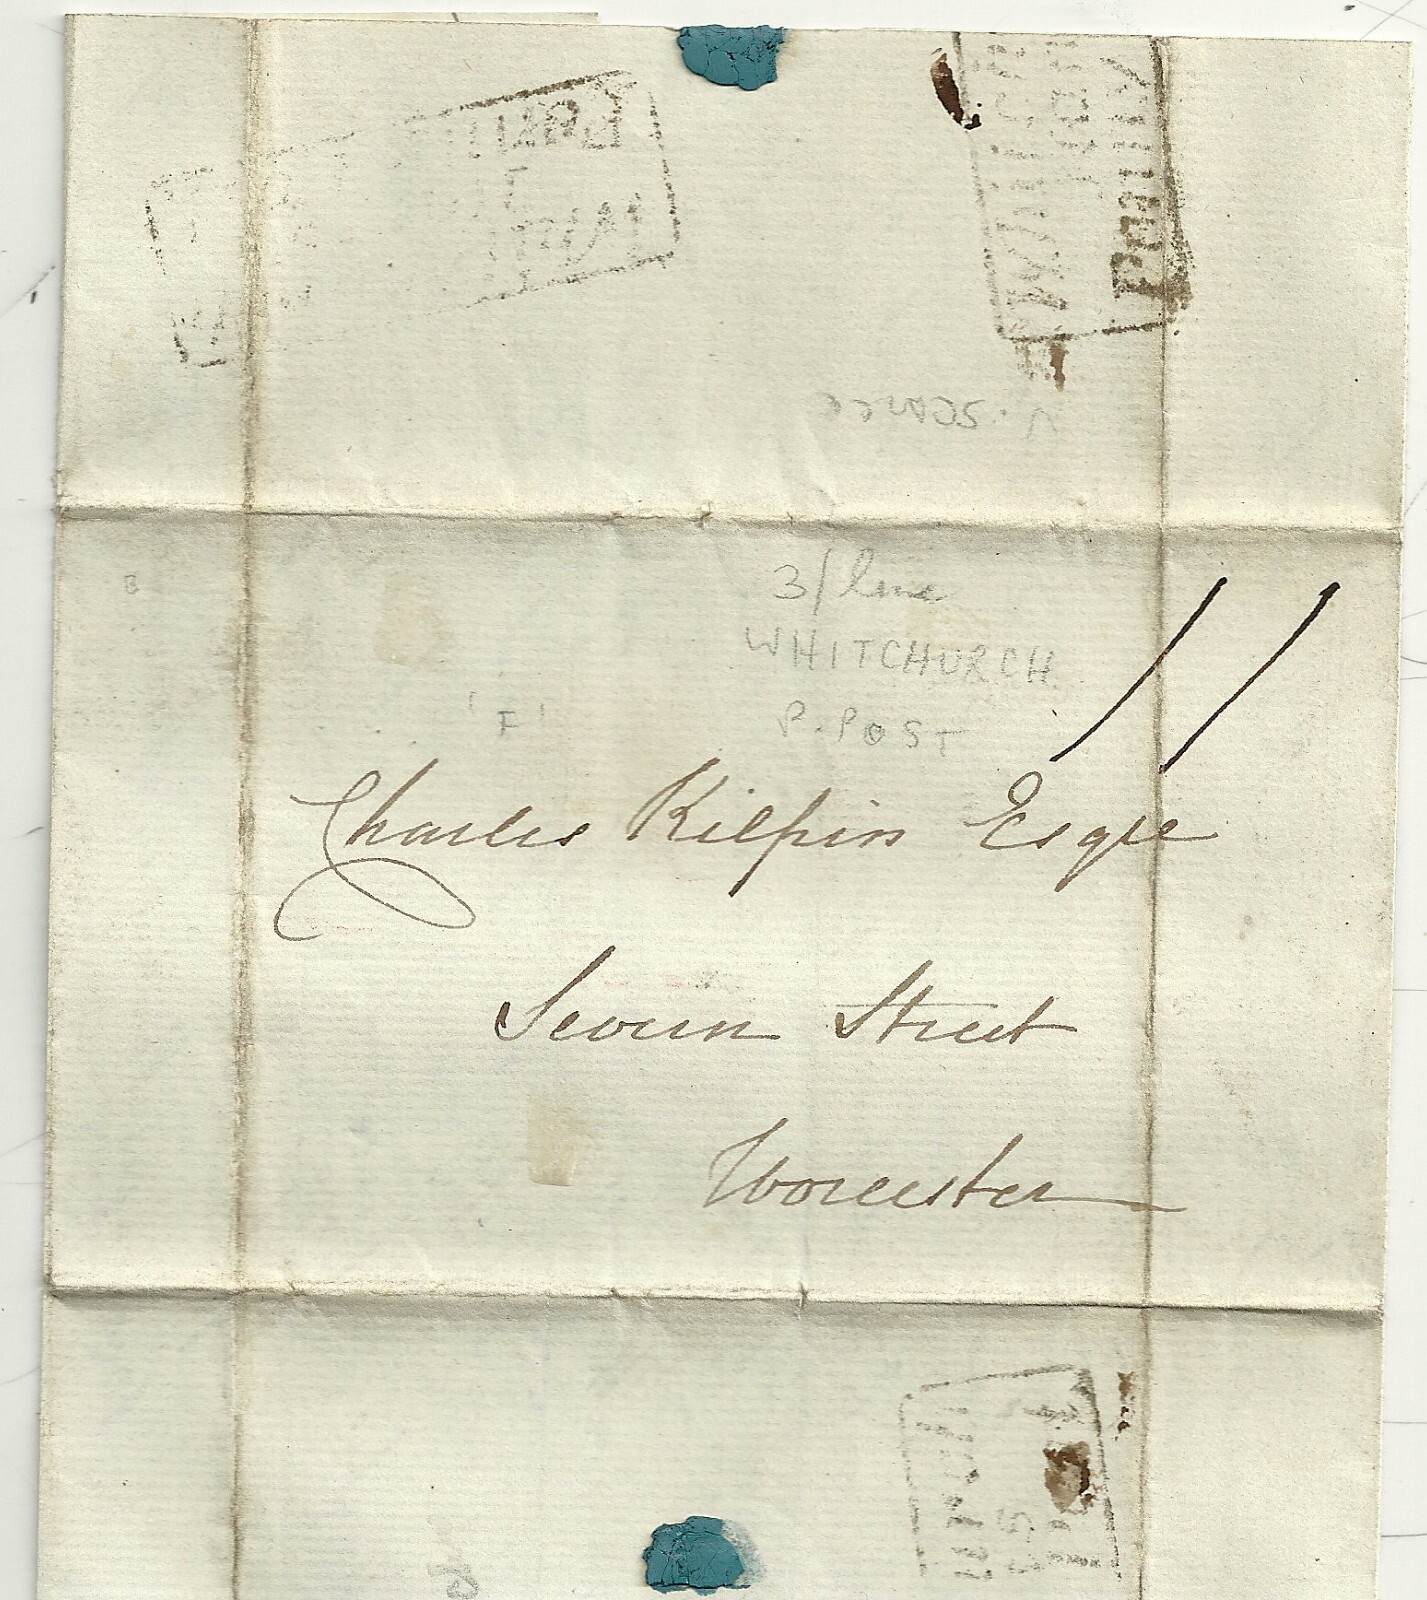 V. SCARCE
3/line
WHITCHURCH
P. POST
'F'
B
11
Charles Kilpin Esqre
Severn Street
Worcester